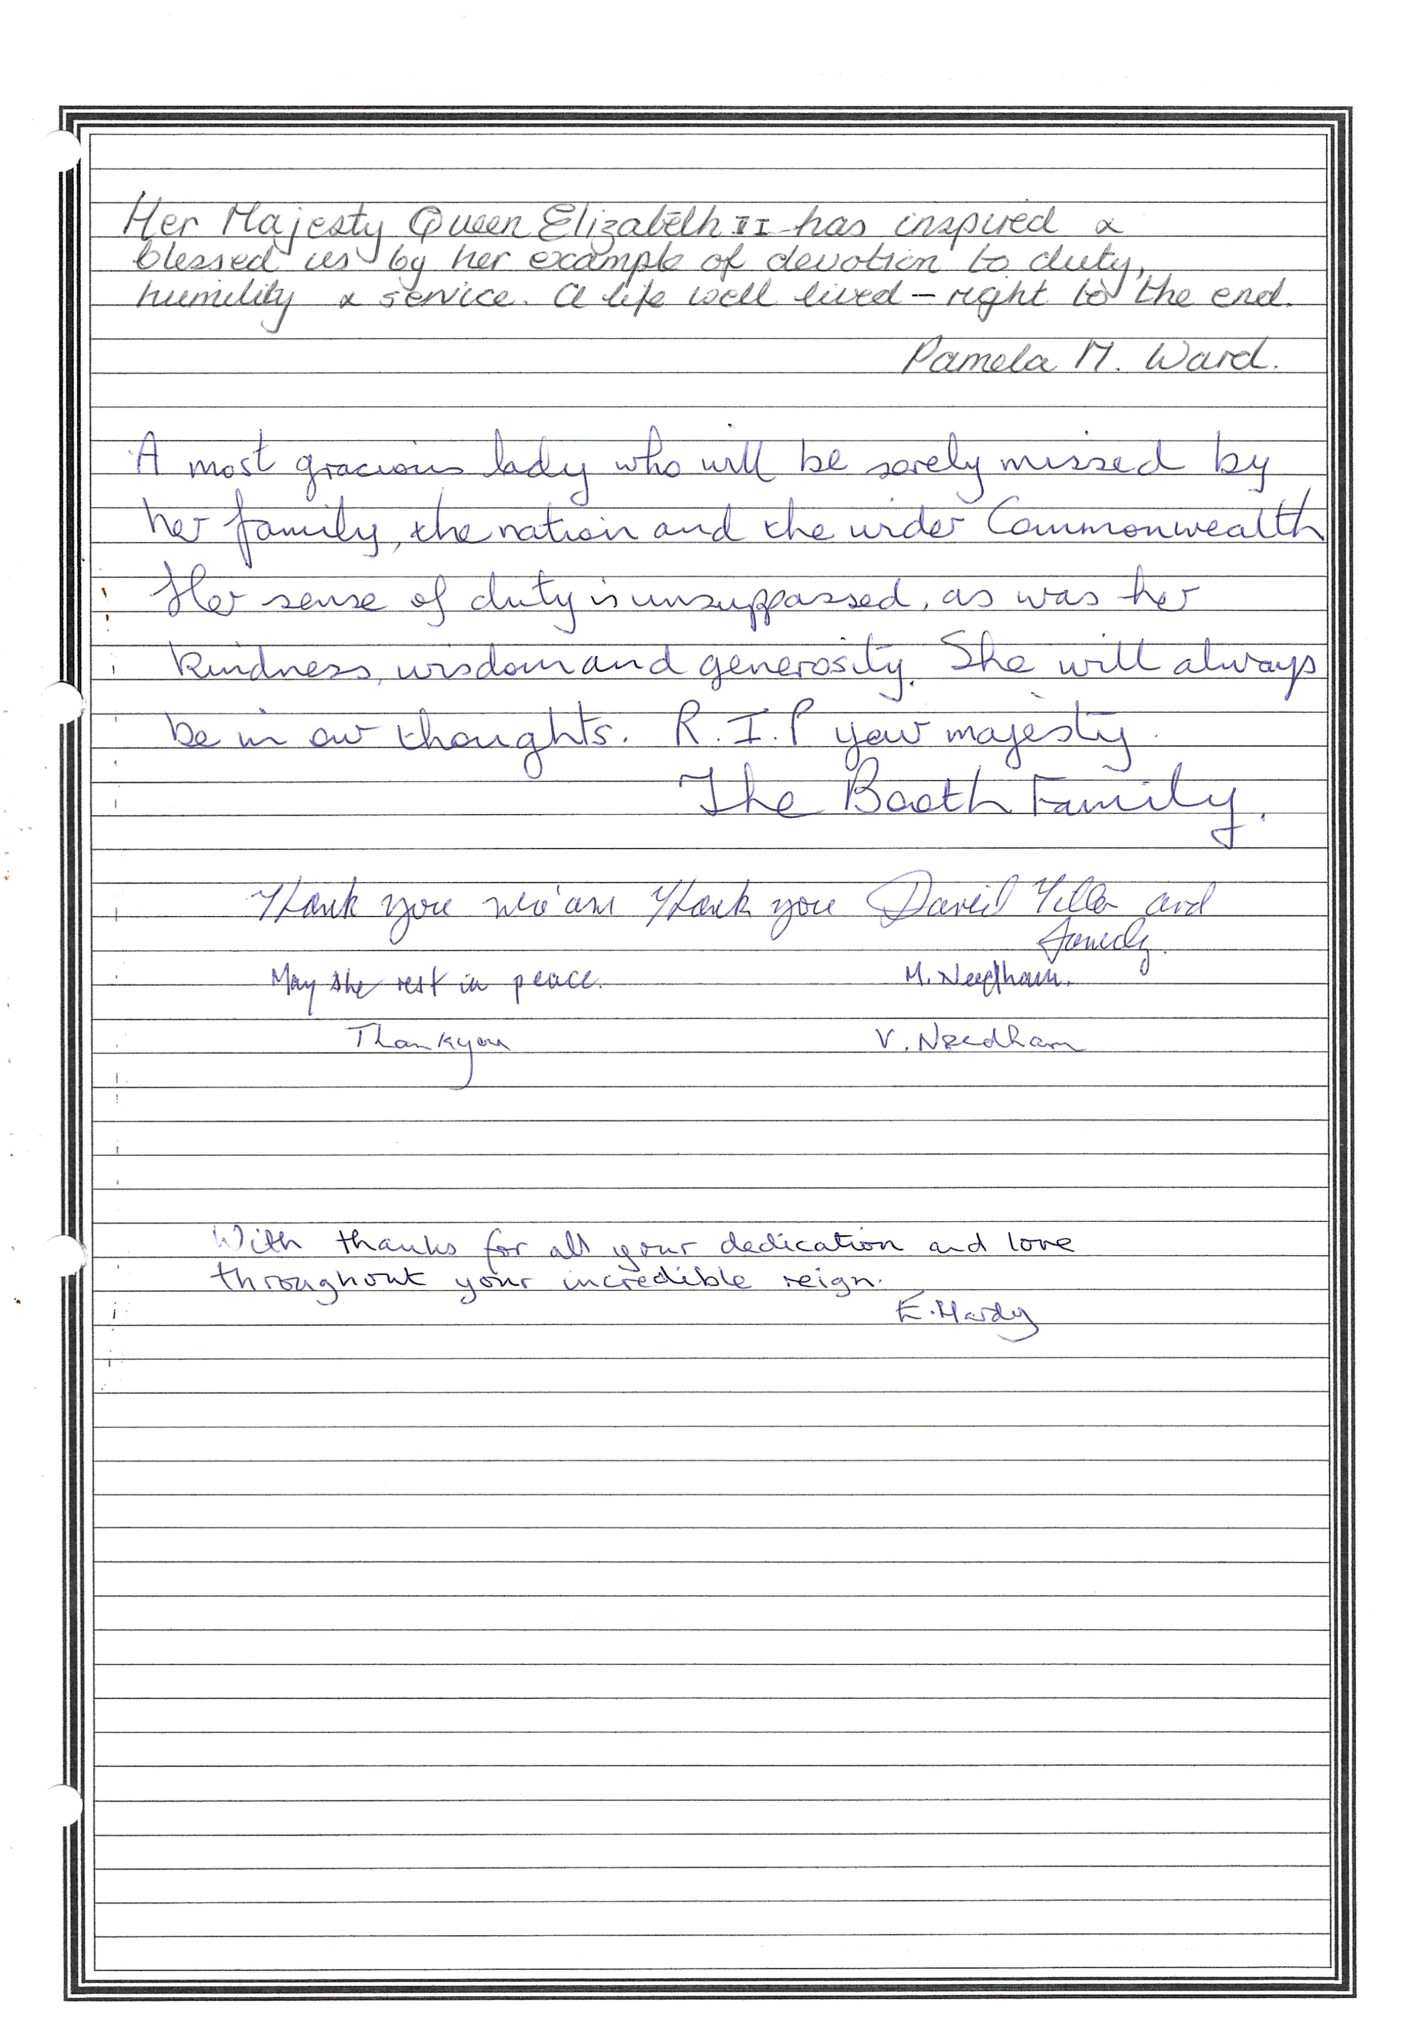 Her Majesty Queen Elizabeth II has inspired &
blessed us by her example of devotion to duty,
humility & service. A life well lived – right to the end.
Pamela M. Ward.
A most gracious lady who will be sorely missed by
her family, the nation and the wider Commonwealth
Her sense of duty is unsuppassed, as was her
kindness, wisdom and generosity. She will always
be in our thoughts. R.I.P your majesty.
The Booth Family.
Thank you ma'am Thank you David and
Family.
May she rest in peace. M. Needham.
Thankyou V. Needham
With thanks for all your dedication and love
throughout your incredible reign.
E. Hardy